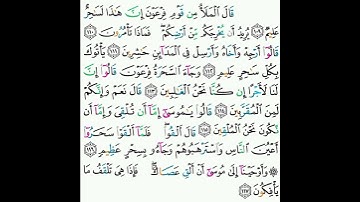 قَالَ ٱلْمَلَأُ مِن قَوْمِ فِرْعَوْنَ إِنَّ هَٰذَا لَسَٰحِرٌ
عَلِيمٌ ١٠٩ يُرِيدُ أَن يُخْرِجَكُم مِّنْ أَرْضِكُمْ فَمَاذَا تَأْمُرُونَ ١١٠
قَالُوٓا۟ أَرْجِهْ وَأَخَاهُ وَأَرْسِلْ فِى ٱلْمَدَآئِنِ حَٰشِرِينَ ١١١ يَأْتُوكَ
بِكُلِّ سَٰحِرٍ عَلِيمٍ ١١٢ وَجَآءَ ٱلسَّحَرَةُ فِرْعَوْنَ قَالُوٓا۟ إِنَّ
لَنَا لَأَجْرًا إِن كُنَّا نَحْنُ ٱلْغَٰلِبِينَ ١١٣ قَالَ نَعَمْ وَإِنَّكُمْ
لَمِنَ ٱلْمُقَرَّبِينَ ١١٤ قَالُوا۟ يَٰمُوسَىٰٓ إِمَّآ أَن تُلْقِىَ وَإِمَّآ أَن
نَّكُونَ نَحْنُ ٱلْمُلْقِينَ ١١٥ قَالَ أَلْقُوا۟ فَلَمَّآ أَلْقَوْا۟ سَحَرُوٓا۟
أَعْيُنَ ٱلنَّاسِ وَٱسْتَرْهَبُوهُمْ وَجَآءُو بِسِحْرٍ عَظِيمٍ ١١٦
۞ وَأَوْحَيْنَآ إِلَىٰ مُوسَىٰٓ أَنْ أَلْقِ عَصَاكَ فَإِذَا هِىَ تَلْقَفُ مَا
يَأْفِكُونَ ١١٧